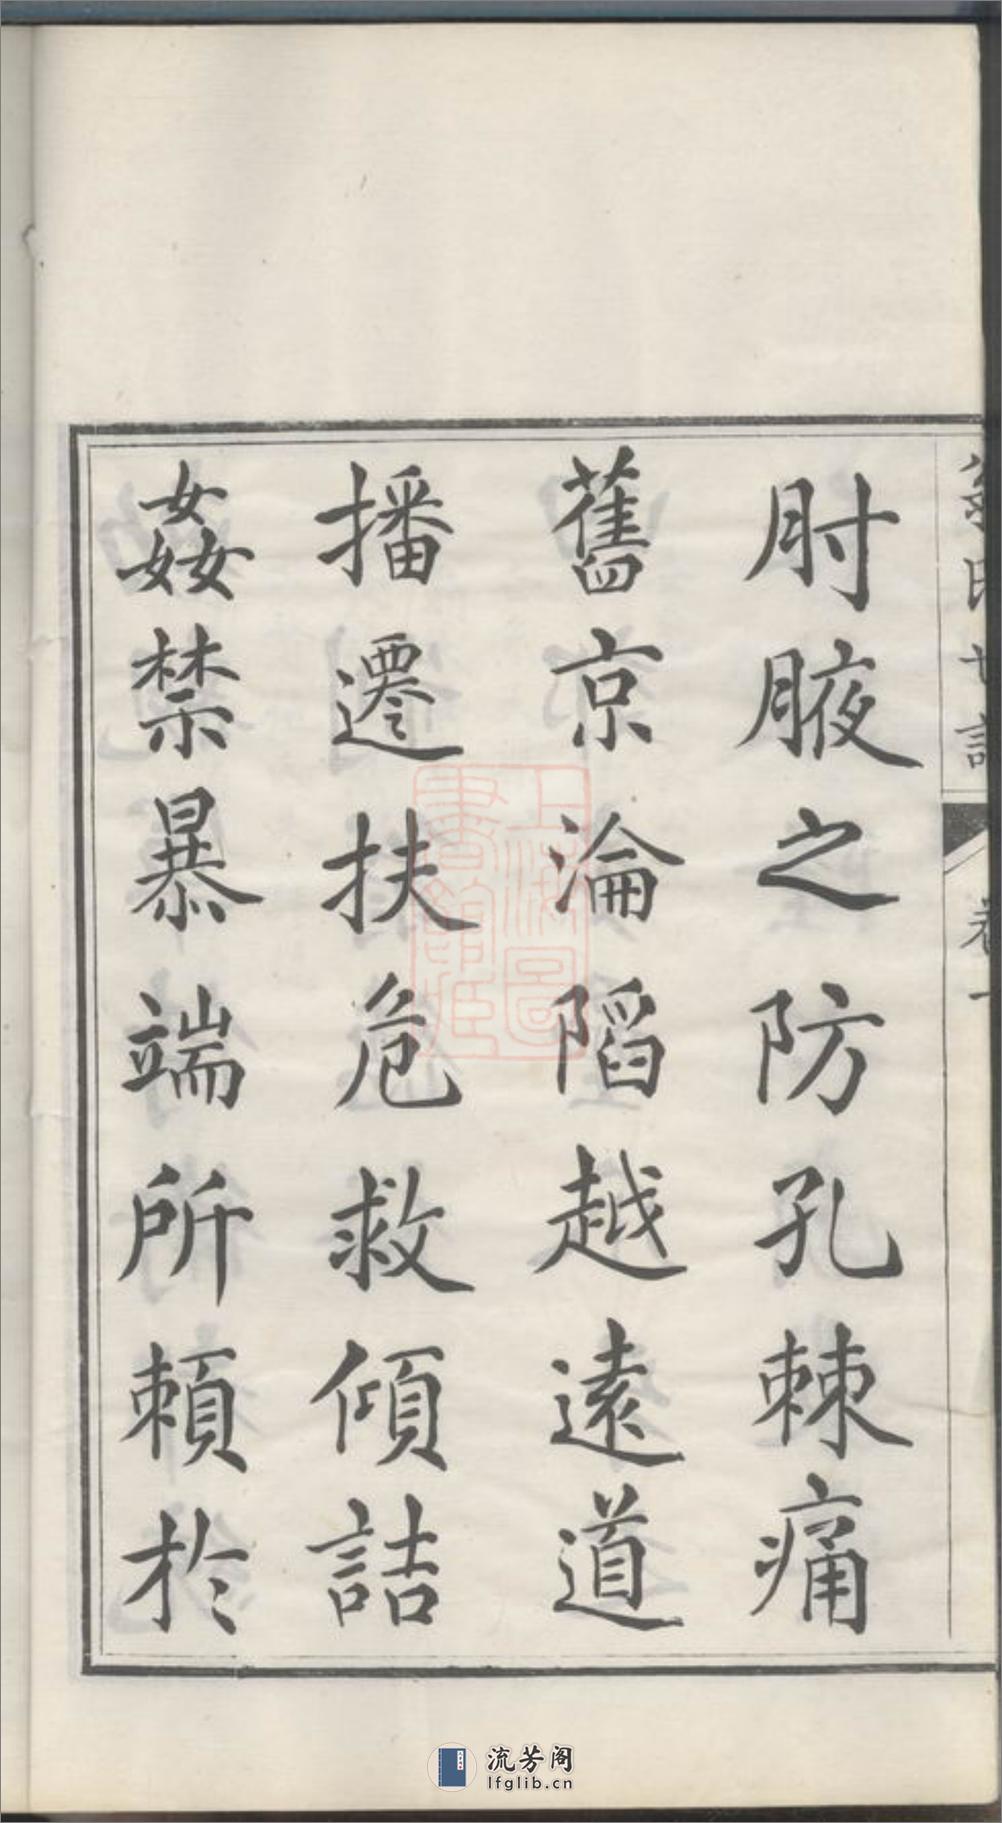 肘腋之防孔棘痛
舊京淪陷越遠道
播遷扶危救傾詰
姦禁暴端所賴於
上海圖書館藏
流芳阁
lfglib.cn